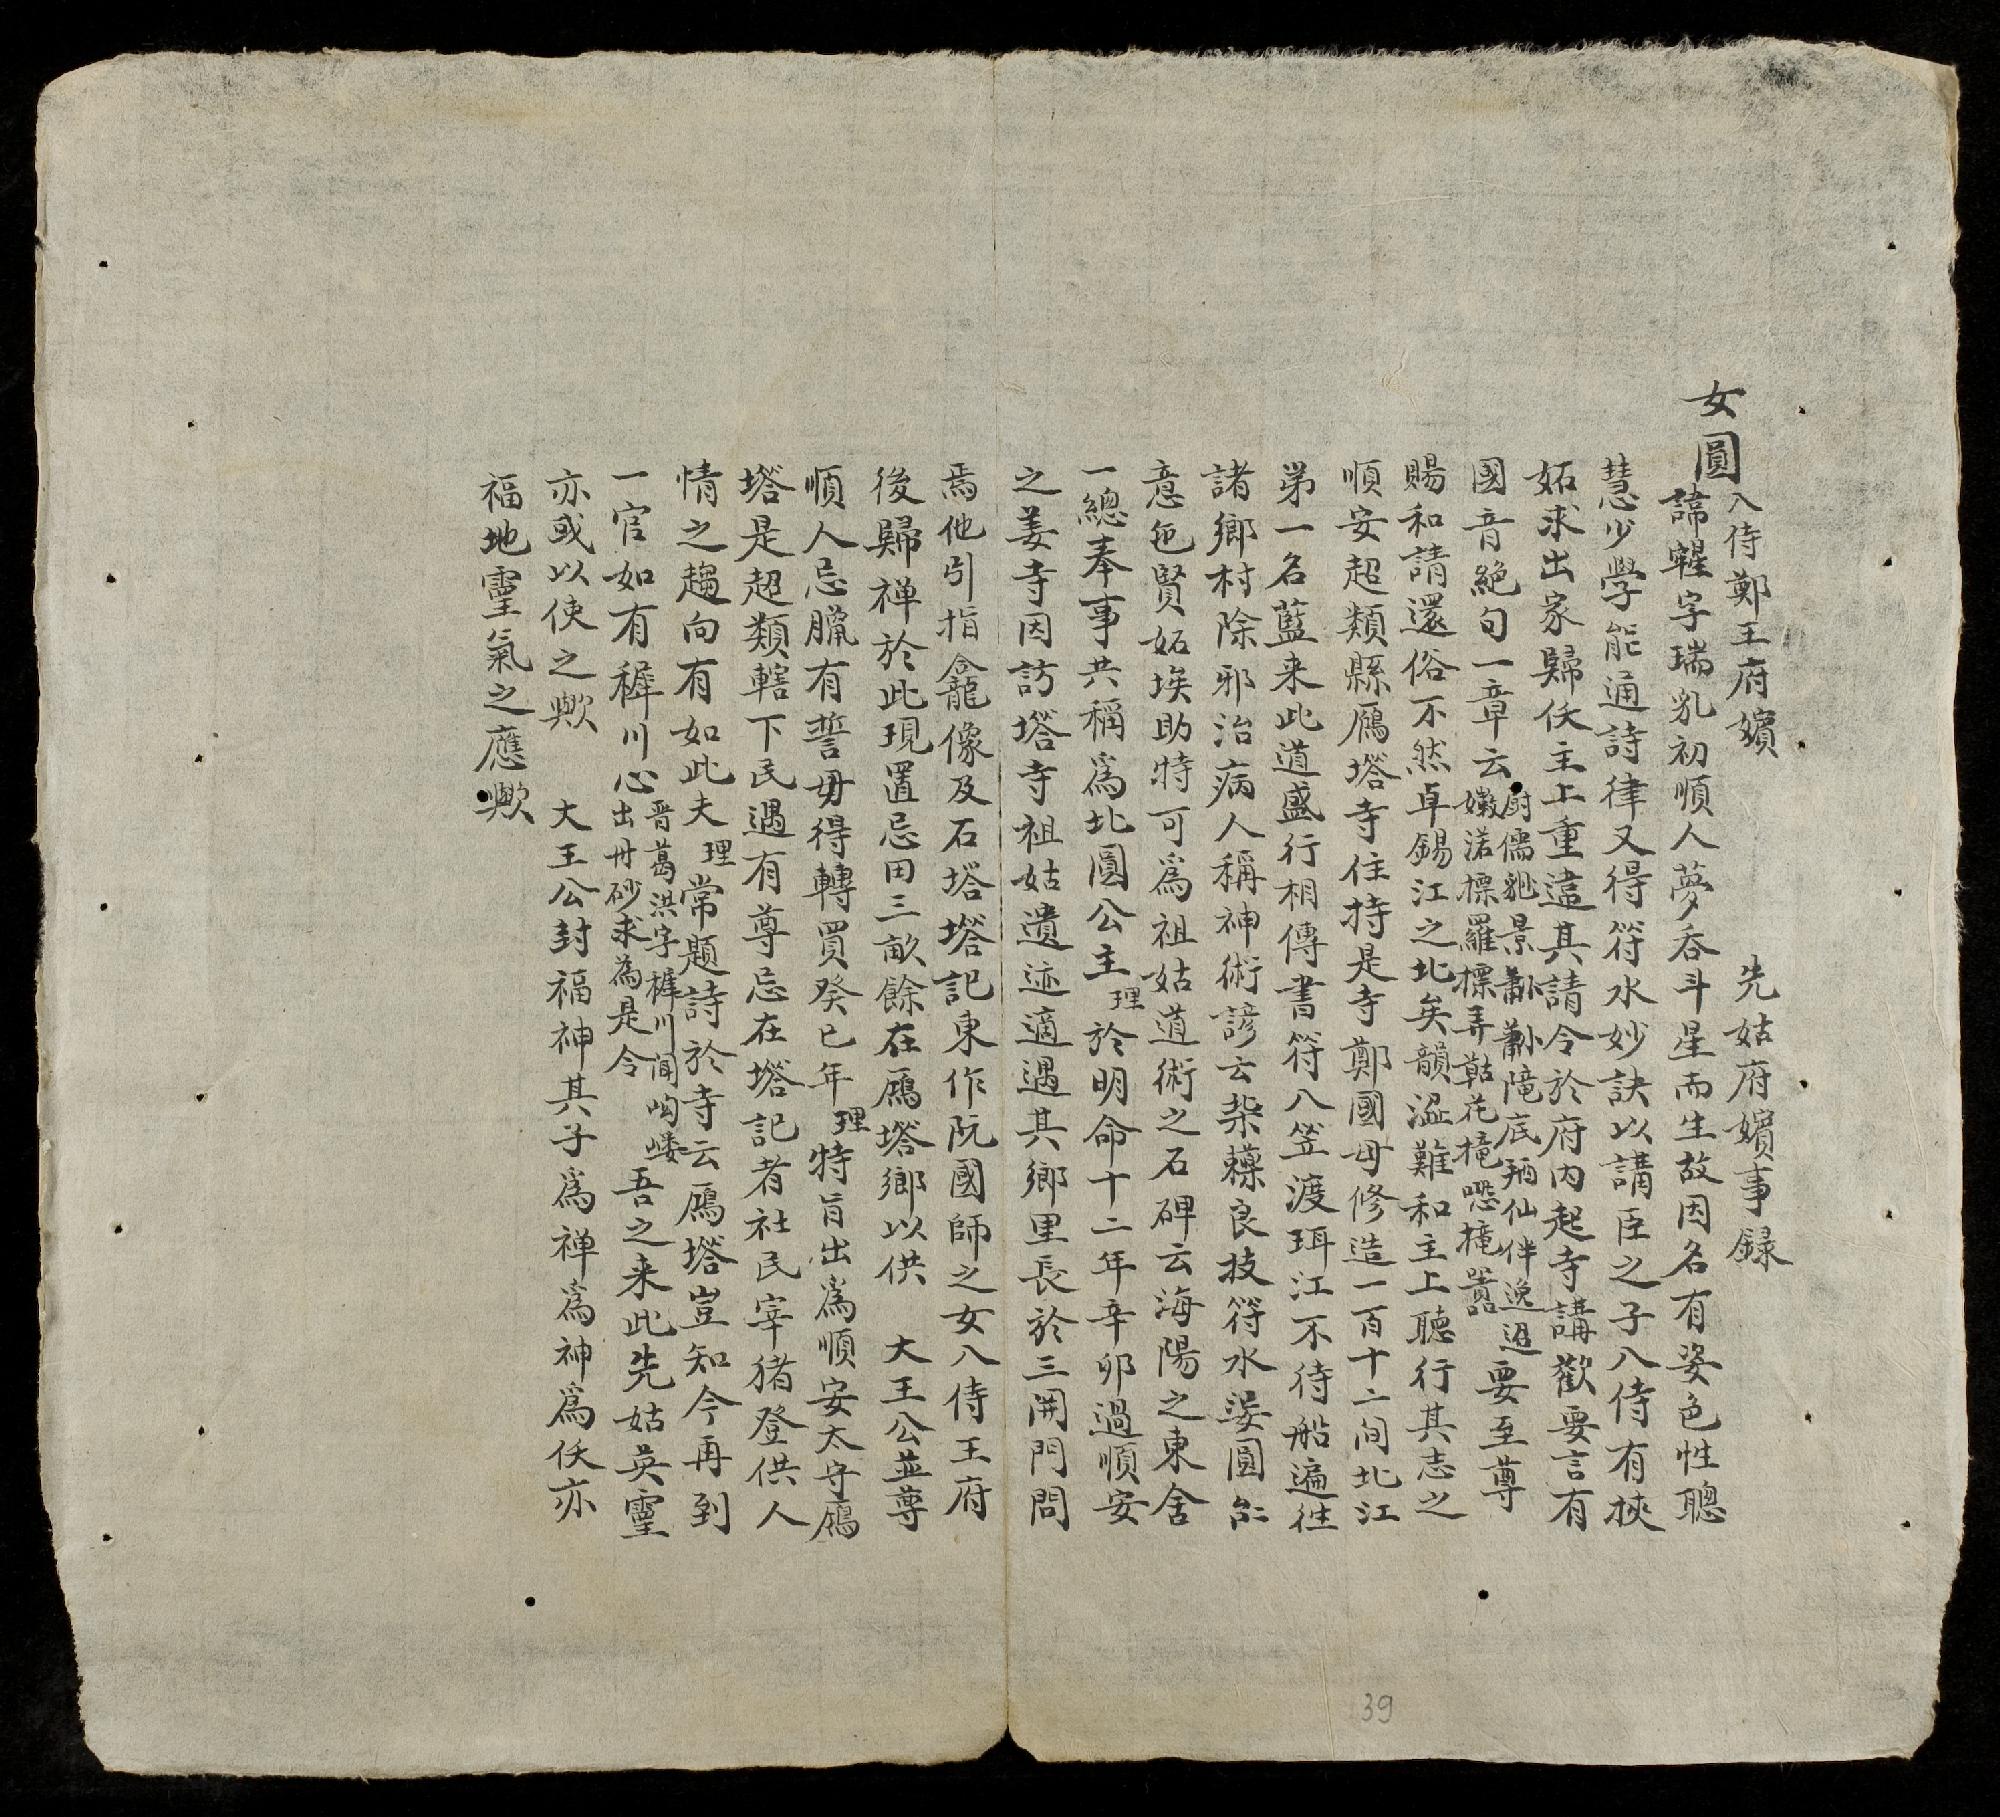 女圓入侍鄭王府嬪 先姑府嬪事録
諱𨐈字瑞乳初順人夢吞斗星而生故因名有姿色性聰
慧少學能通詩律又得符水妙訣以講臣之子入侍有挾
妬求出家歸佚主上重違其請令於府内起寺講歡要言有
國音絶句一章云 要至尊
廚儒 景 底 仙伴逸迢
嫩渃摽羅摽弄 花撓 撓
賜和請還俗不然卓錫江之北矣韻澁難和主上聽行其志之
順安超類縣鴈塔寺住持是寺鄭國母修造一百十二间北江
第一名藍来此道盛行相傳書符八笠渡珥江不待船遍徃
諸鄉村除邪治病人稱神術諺云柴 良技符水婆圓
意包賢妬埃助特可爲祖姑道術之石碑云海陽之東舍
一總奉事共稱爲北圓公主理於明命十二年辛卯過順安
之姜寺因訪塔寺祖姑遺迹適遇其鄉里長於三関門問
焉他引指龕像及石塔塔記東作阮國師之女入侍王府
後歸禅於此現置忌田三畝餘在鴈塔鄉以供 大王公並尊
順人忌臘有誓毋得轉買癸巳年理特旨出爲順安太守鴈
塔是超類轄下民遇有尊忌在塔記者社民宰猪登供人
情之趨向有如此夫理常題詩於寺云鴈塔豈知今再到
一官如有穉川心 吾之来此先姑英靈
晋葛洪字穉川闻岣嶁
出丹砂求為是令
亦或以使之歟 大王公封福神其子爲禅爲神爲佚亦
福地靈氣之應歟
39